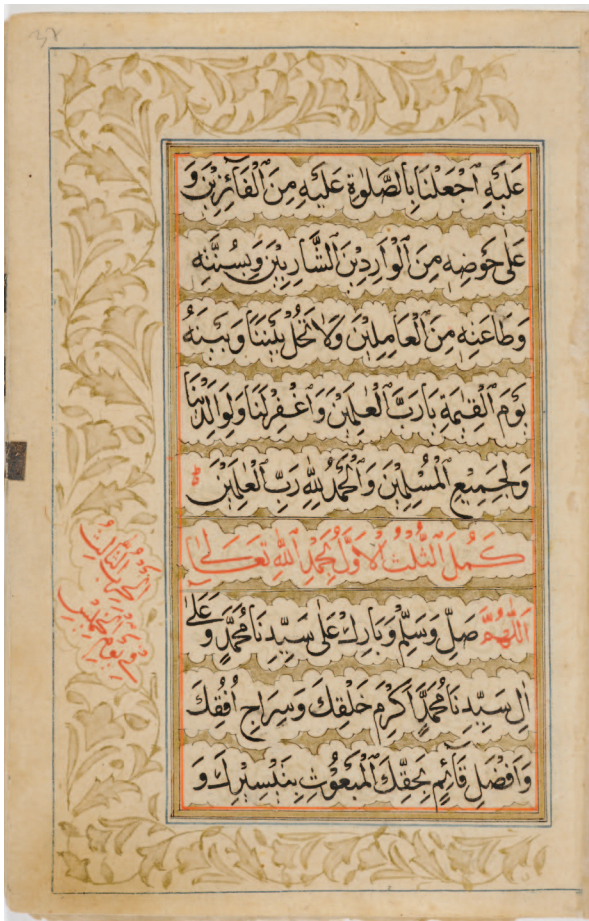 عَلَيْهِ اجْعَلْنَا بِالصَّلٰوةِ عَلَيْهِ مِنَ الْفَآئِزِيْنَ وَ
عَلٰى حَوْضِهٖ مِنَ الْوَارِدِيْنَ الشَّارِبِيْنَ وَبِسُنَّتِهٖ
وَطَاعَتِهٖ مِنَ الْعَامِلِيْنَ وَلَا تَحُلْ بَيْنَنَا وَبَيْنَهُ
يَوْمَ الْقِيٰمَةِ يَا رَبَّ الْعٰلَمِيْنَ وَاغْفِرْ لَنَا وَلِوَالِدَيْنَا
وَلِجَمِيْعِ الْمُسْلِمِيْنَ وَالْحَمْدُ لِلّٰهِ رَبِّ الْعٰلَمِيْنَ
كَمُلَ الثُّلُثُ الْاَوَّلُ بِحَمْدِ اللّٰهِ تَعَالٰى
اَللّٰهُمَّ صَلِّ وَسَلِّمْ وَبَارِكْ عَلٰى سَيِّدِنَا مُحَمَّدٍ وَّعَلٰى
اٰلِ سَيِّدِنَا مُحَمَّدٍ اَكْرَمِ خَلْقِكَ وَسِرَاجِ اُفُقِكَ
وَاَفْضَلِ قَآئِمٍ بِحَقِّكَ الْمَبْعُوْثِ بِتَيْسِيْرِكَ وَ
اَلْحِزْبُ الثَّالِثُ
فِيْ يَوْمِ